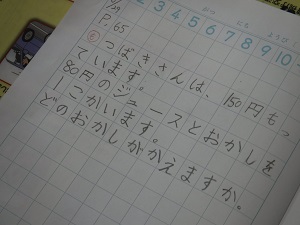 2 3 4 5 6 7 8 9 10
P.65
② つばきさんは、150円もっ
ています。
80円のジュースとおかしを
1こかいます。
どのおかしがかえますか。